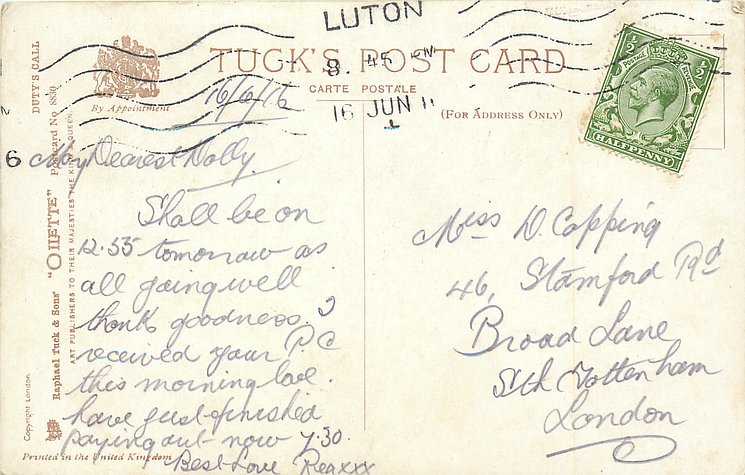 LUTON
8.45 PM
16 JUN 1
TUCK'S POST CARD
CARTE POSTALE
By Appointment
(FOR ADDRESS ONLY)
DUTY'S CALL
Raphael Tuck & Sons' "OILETTE" Postcard No 8830
ART PUBLISHERS TO THEIR MAJESTIES THE KING & QUEEN.
Copyright London.
Printed in the United Kingdom
½ ½
POSTAGE REVENUE
HALFPENNY
6
16/6/16
My Dearest Dolly.
Shall be on
12.55 tomorrow as
all going well
thank goodness. I
received your P.C
this morning love.
have just finished
paying out now 7.30.
Best Love Reg xxx
Miss D. Copping
46, Stamford Rd
Broad Lane
Sth Tottenham
London